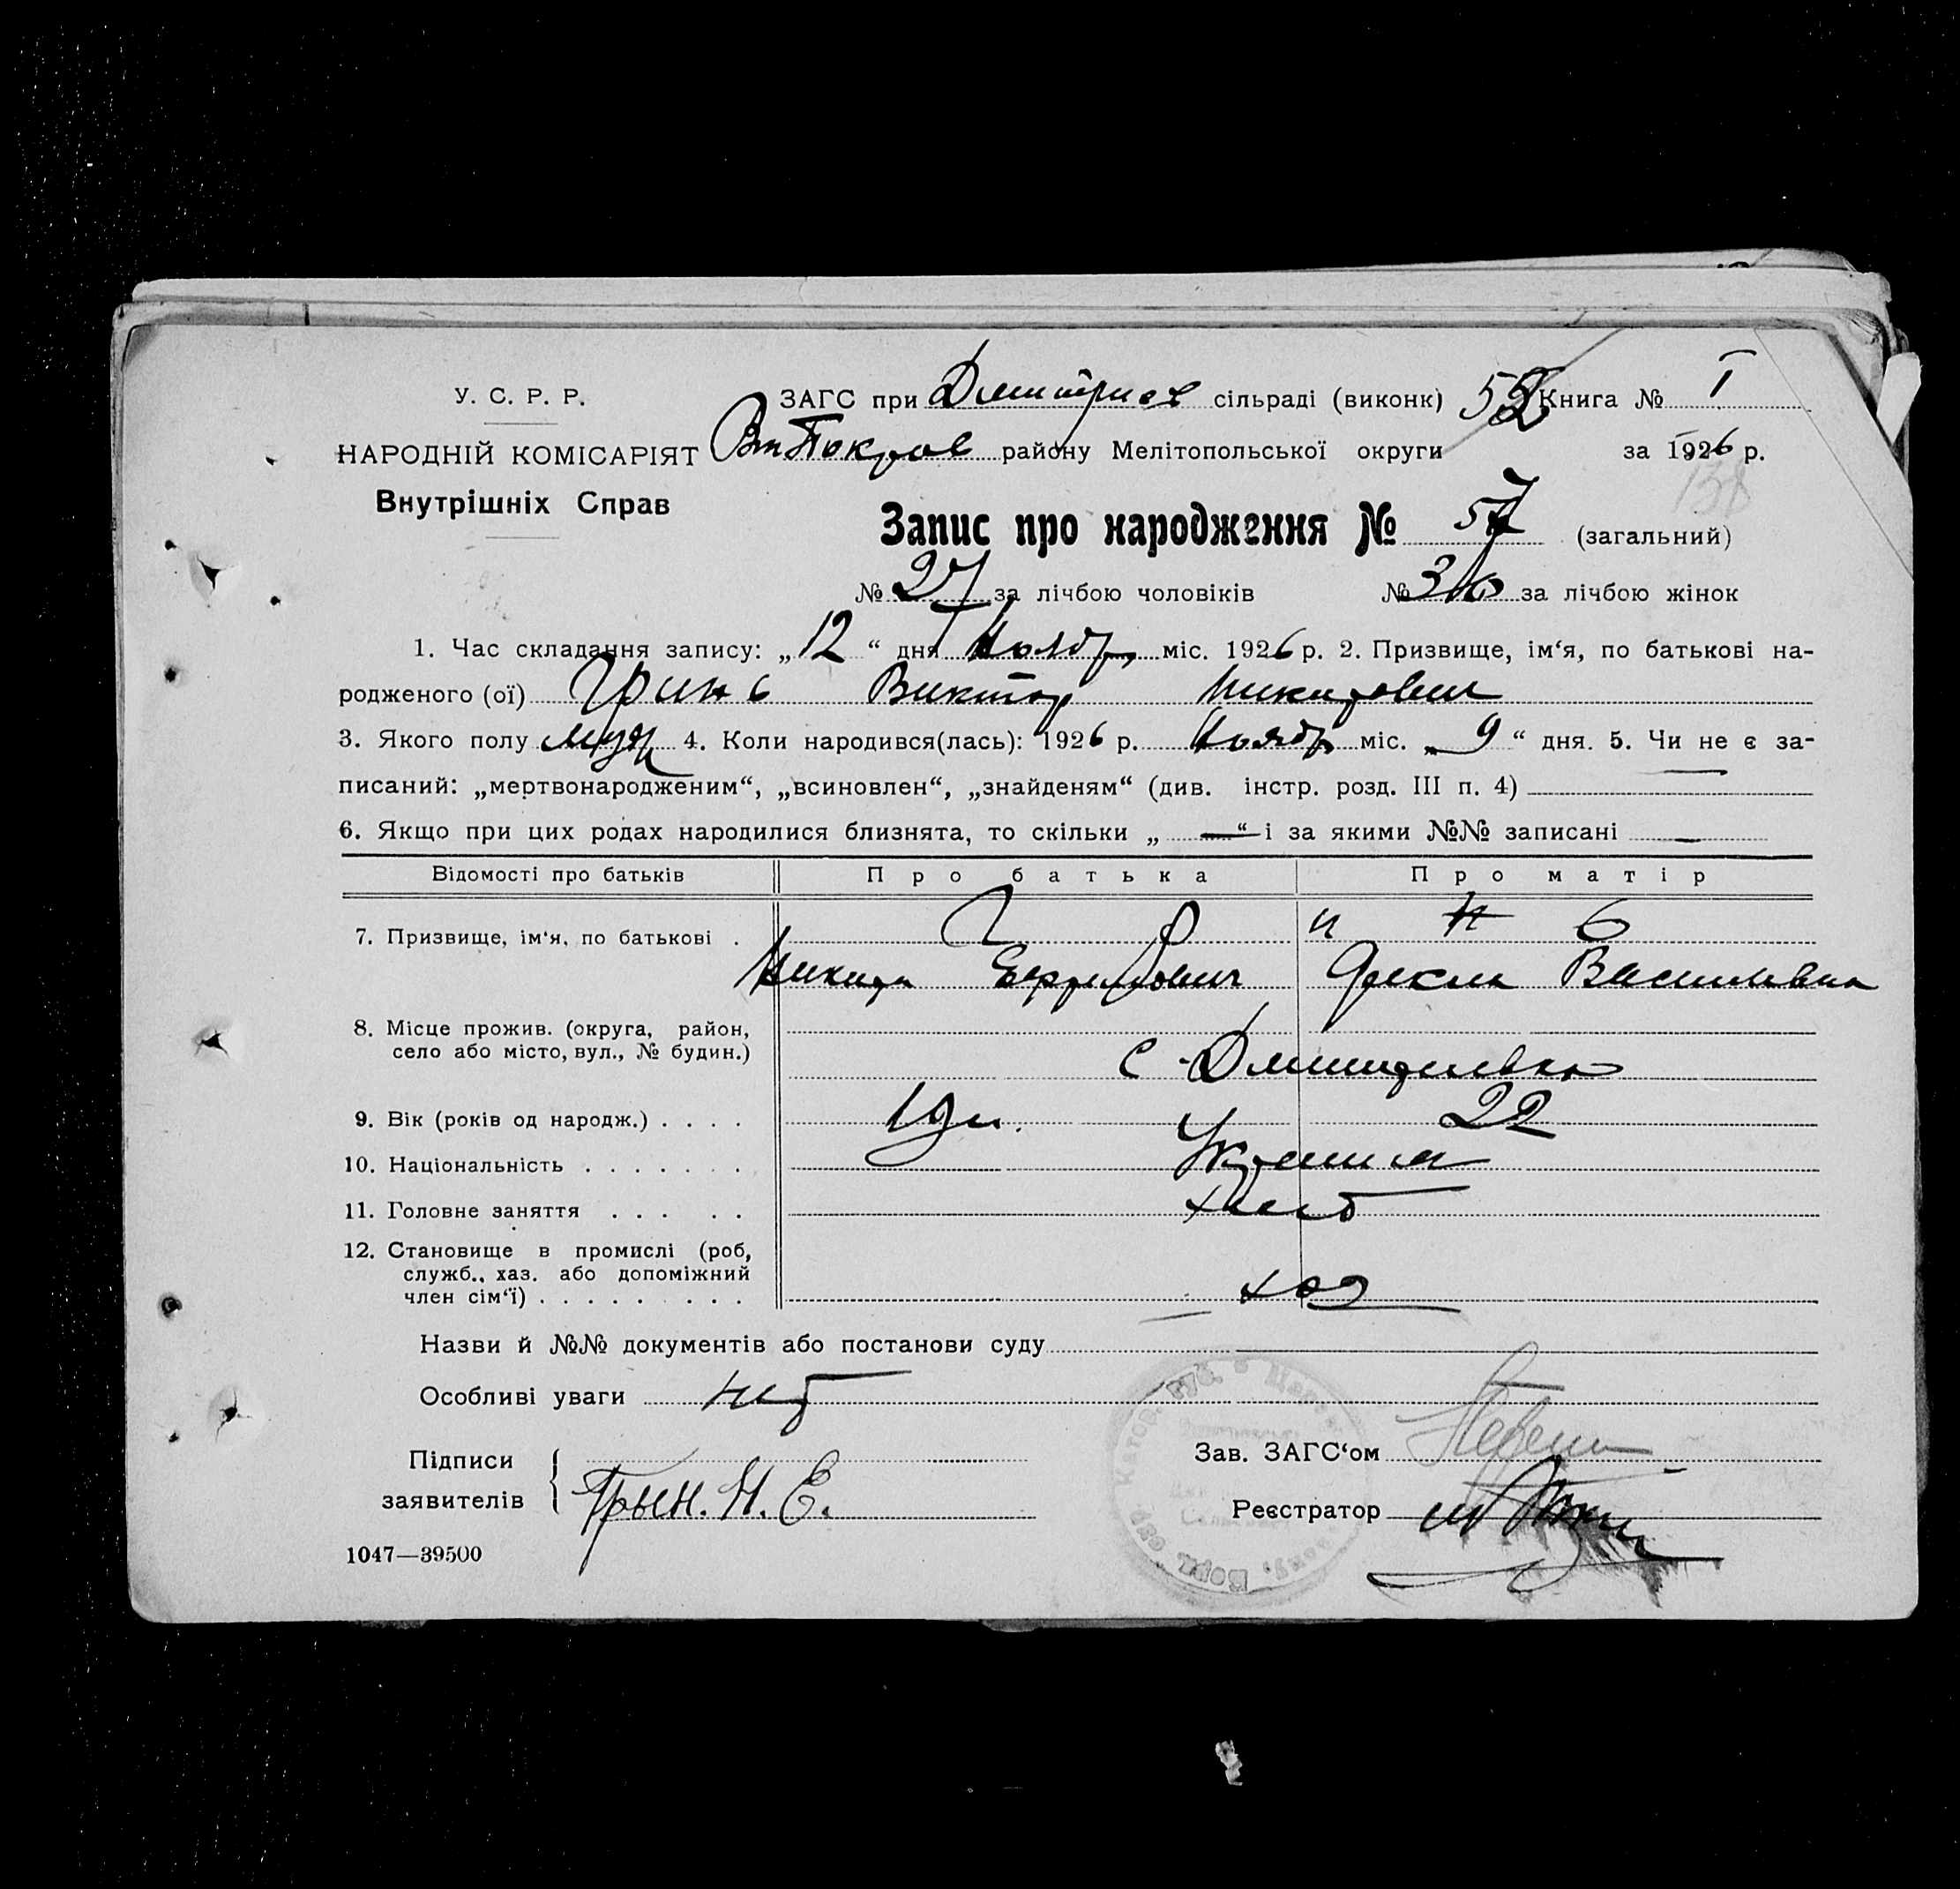 У. С. Р. Р. ЗАГС при Дмитриев сільраді (виконк) 52 Книга № I
НАРОДНІЙ КОМІСАРІЯТ Вт Покров району Мелітопольської округи за 1926 р.
138
Внутрішніх Справ
Запис про народження № 57 (загальний)
№ 27 за лічбою чоловіків № 30 за лічбою жінок
1. Час складання запису: „12“ дня Ноябр міс. 1926 р. 2. Призвище, ім‘я, по батькові на-
родженого (ої) Гринь Виктор Никидович
3. Якого полу муж 4. Коли народився(лась): 1926 р. Ноябр міс. „9“ дня. 5. Чи не є за-
писаний: „мертвонародженим“, „всиновлен“, „знайденям“ (див. інстр. розд. III п. 4) —
6. Якщо при цих родах народилися близнята, то скільки „—“ і за якими №№ записані —
Відомості про батьків Про батька Про матір
7. Призвище, ім‘я, по батькові . Г р и н ь
Никита Ефимович Фекла Василивна
8. Місце прожив. (округа, район,
село або місто, вул., № будин.) С. Дмитривка
9. Вік (років од народж.) . . . . 19 22
10. Національність . . . . . . . Украин
11. Головне заняття . . . . . хлеб
12. Становище в промислі (роб,
служб., хаз. або допоміжний
член сім‘ї) . . . . . . . . . хоз
Назви й №№ документів або постанови суду
Особливі уваги нет
Підписи
заявителів Грын. Н. Е.
Зав. ЗАГС‘ом
Реєстратор
1047—39500